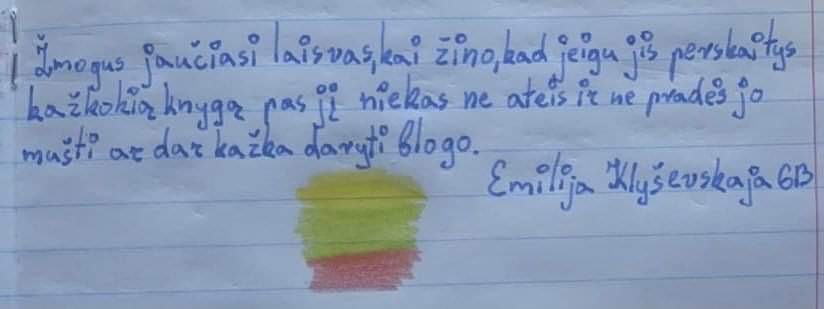 Žmogus jaučiasi laisvas, kai žino, kad jeigu jis perskaitys
kažkokią knygą pas jį niekas ne ateis ir ne pradės jo
mušti ar dar kažka daryti blogo.
Emilija Klyševskaja 6B